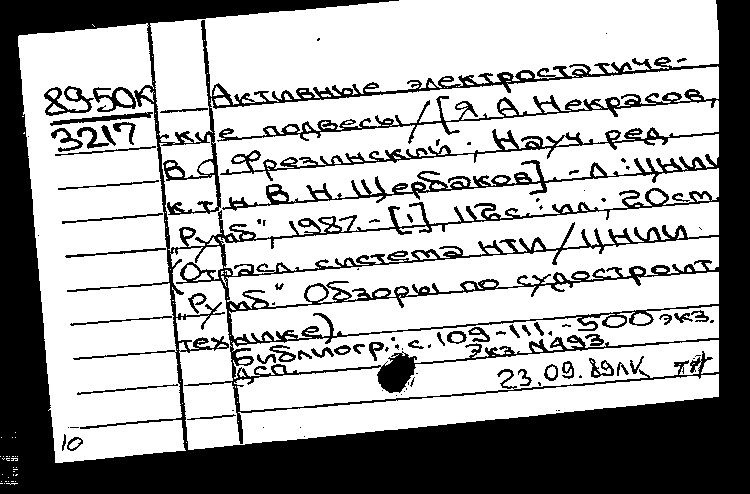 89-50К
3217
Активные электростатиче-
ские подвесы / [Я. А. Некрасов,
В. С. Фрезинский; Науч. ред.
к. т. н. В. Н. Щербаков]. - Л.: ЦНИИ
"Румб", 1987. - [1], 112с.: ил.; 20см.
(Отрасл. система НТИ / ЦНИИ
"Румб." Обзоры по судостроит.
технике).
Библиогр.: с. 109-111. - 500 экз.
ДСП. Экз. N493.
23.09.89ЛК
10